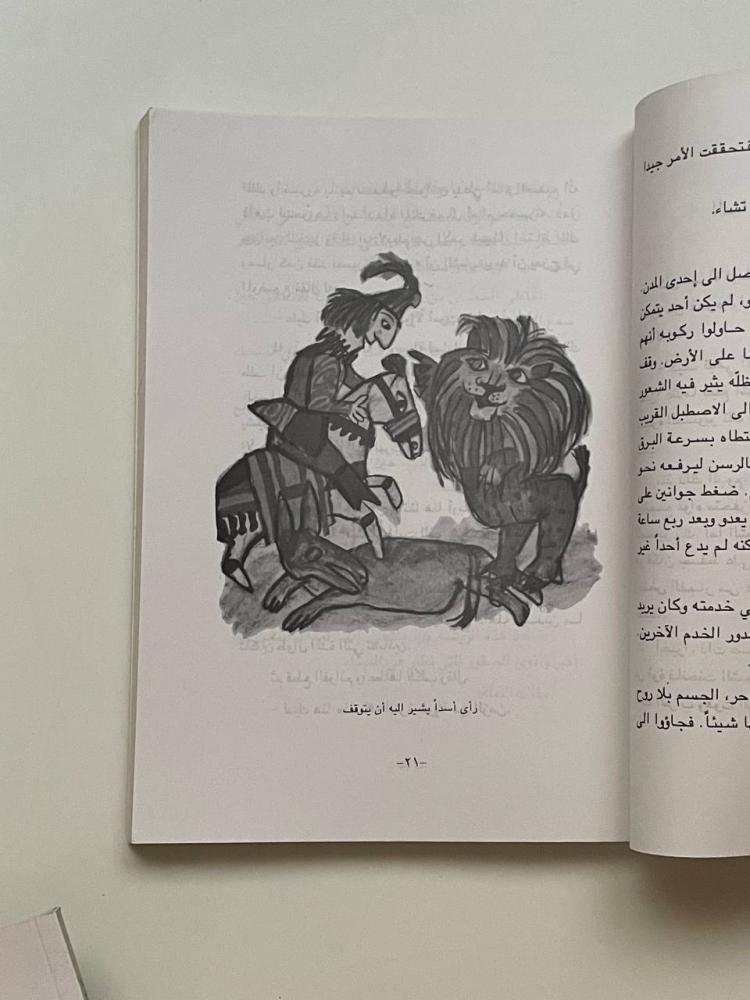 رأى أسداً يشير إليه أن يتوقف
-٢١-
فتحققت الأمر جيدا
تشاء.
صل الى إحدى المدن.
و، لم يكن أحد يتمكن
حاولوا ركوبه أنهم
ا على الأرض. وقف
ظلّه يثير فيه الشعور
لى الاصطبل القريب
تطاه بسرعة البرق
الرسن ليرفعه نحو
. ضغط جوانبن على
يعدو وبعد ربع ساعة
كنه لم يدع أحداً غير
ي خدمته وكان يريد
دور الخدم الآخرين.
حر، الجسم بلا روح
ا شيئاً. فجاؤوا الى